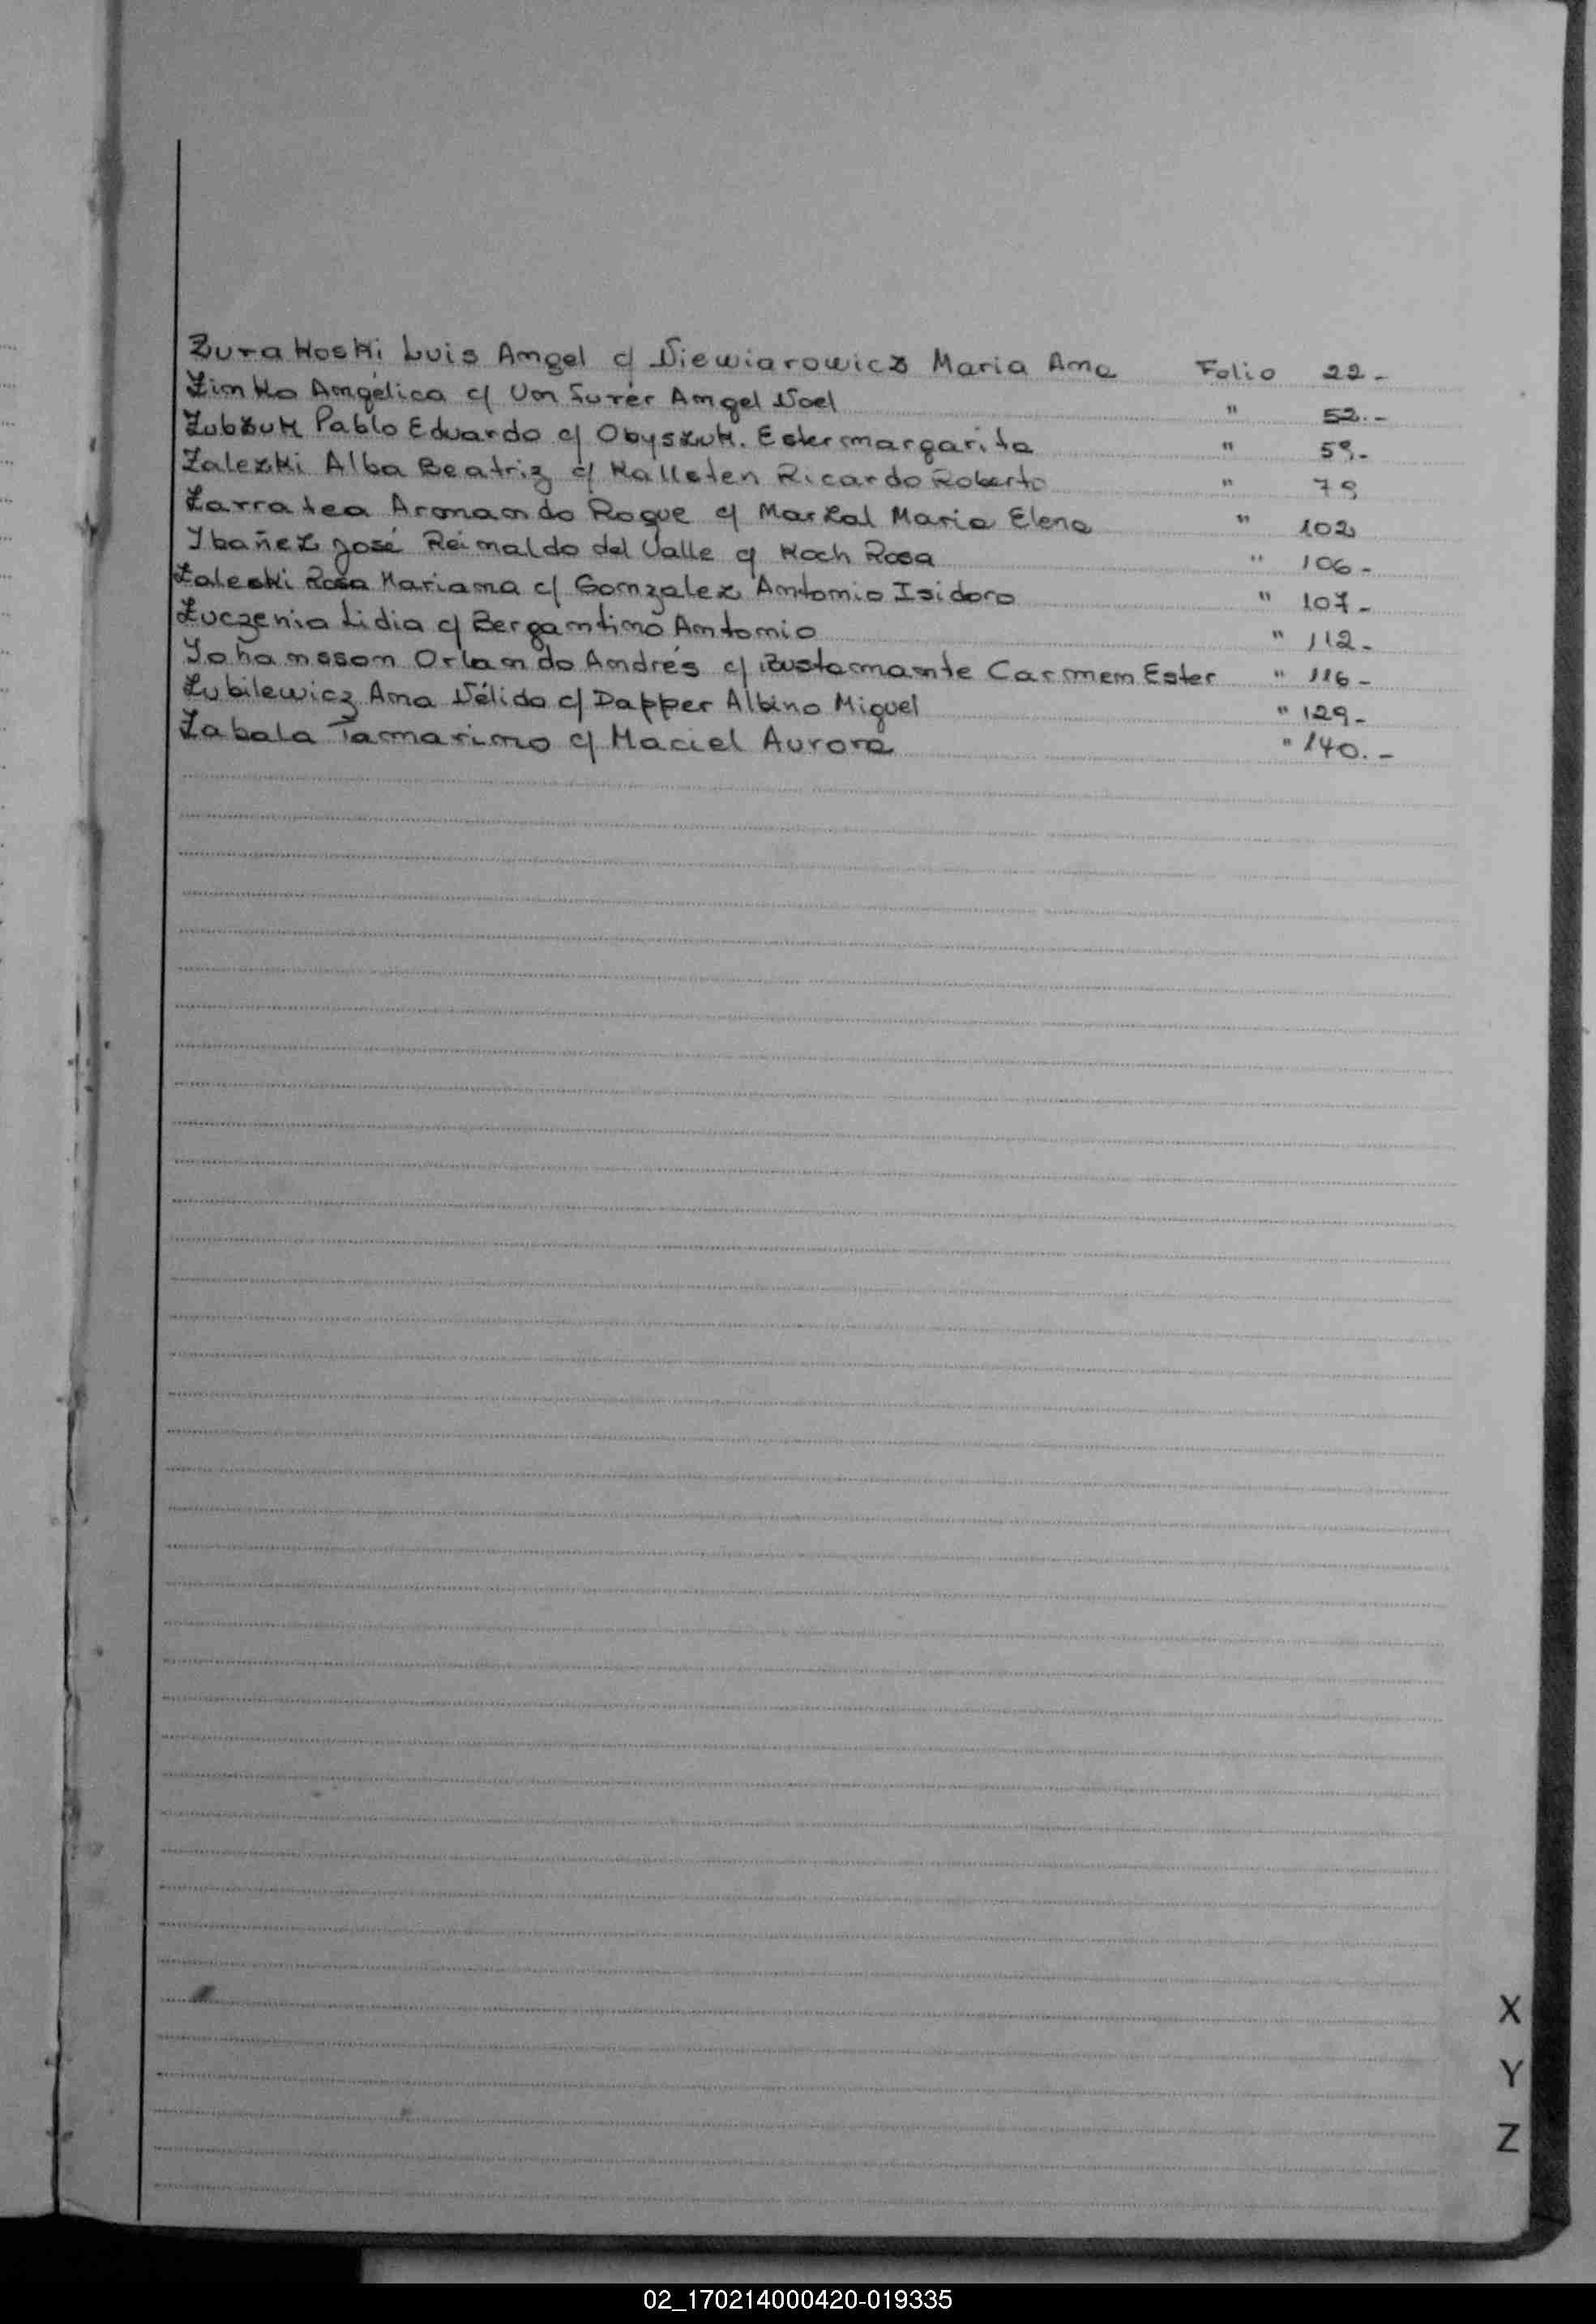 Zurakoski Luis Angel c/ Niewiarowicz Maria Ana Folio 22.-
Zimko Angélica c/ Von Furér Angel Noel " 52.-
Zubzuk Pablo Eduardo c/ Obyszuk. Ester margarita " 59.-
Zalezki Alba Beatriz c/ Kalleten Ricardo Roberto " 79
Zarratea Armando Roque c/ Marzal Maria Elena " 102
Ybañez José Reinaldo del Valle c/ Koch Rosa " 106-
Zaleski Rosa Mariana c/ Gonzalez Antonio Isidoro " 107-
Zuczenia Lidia c/ Bergantino Antonio " 112-
Yohansson Orlando Andrés c/ Bustamante Carmen Ester " 116-
Zubilewicz Ana Nélida c/ Dapper Albino Miguel " 129-
Zabala Tamarino c/ Maciel Aurora " 140.-
X
Y
Z
02_170214000420-019335